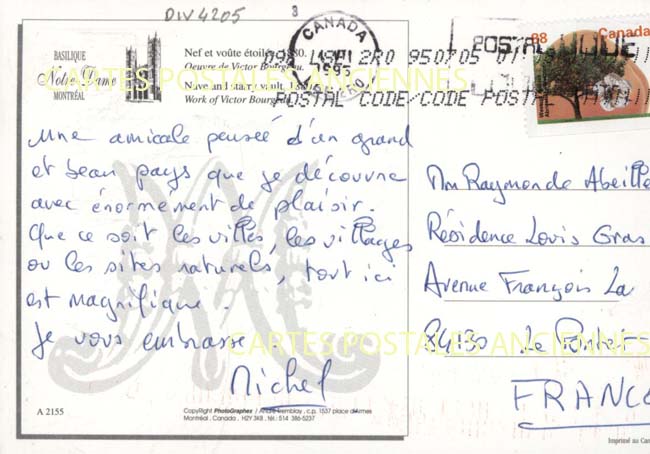 DIV 4205
8
BASILIQUE
Notre-Dame
MONTRÉAL
Nef et voûte étoilée, 1880.
Oeuvre de Victor Bourgeau.
Nave and starry vault, 1880.
Work of Victor Bourgeau.
CANADA
88 Canada
2R0 950705
POSTAL CODE/CODE POSTAL
CARTES POSTALES ANCIENNES
Une amicale pensée d'un grand
et beau pays que je découvre
avec énormément de plaisir.
Que ce soit les villes, les villages
ou les sites naturels, tout ici
est magnifique.
Je vous embrasse
Michel
Mm Raymonde Abeille
Résidence Louis Gras
Avenue François La
84130 Le Pontet
FRANCE
CARTES POSTALES ANCIENNES
A 2155
CopyRight PhotoGraphex / André Tremblay, c.p. 1557 place d'Armes
Montréal. Canada. H2Y 3K8. tél.: 514 386-5237
Imprimé au Can